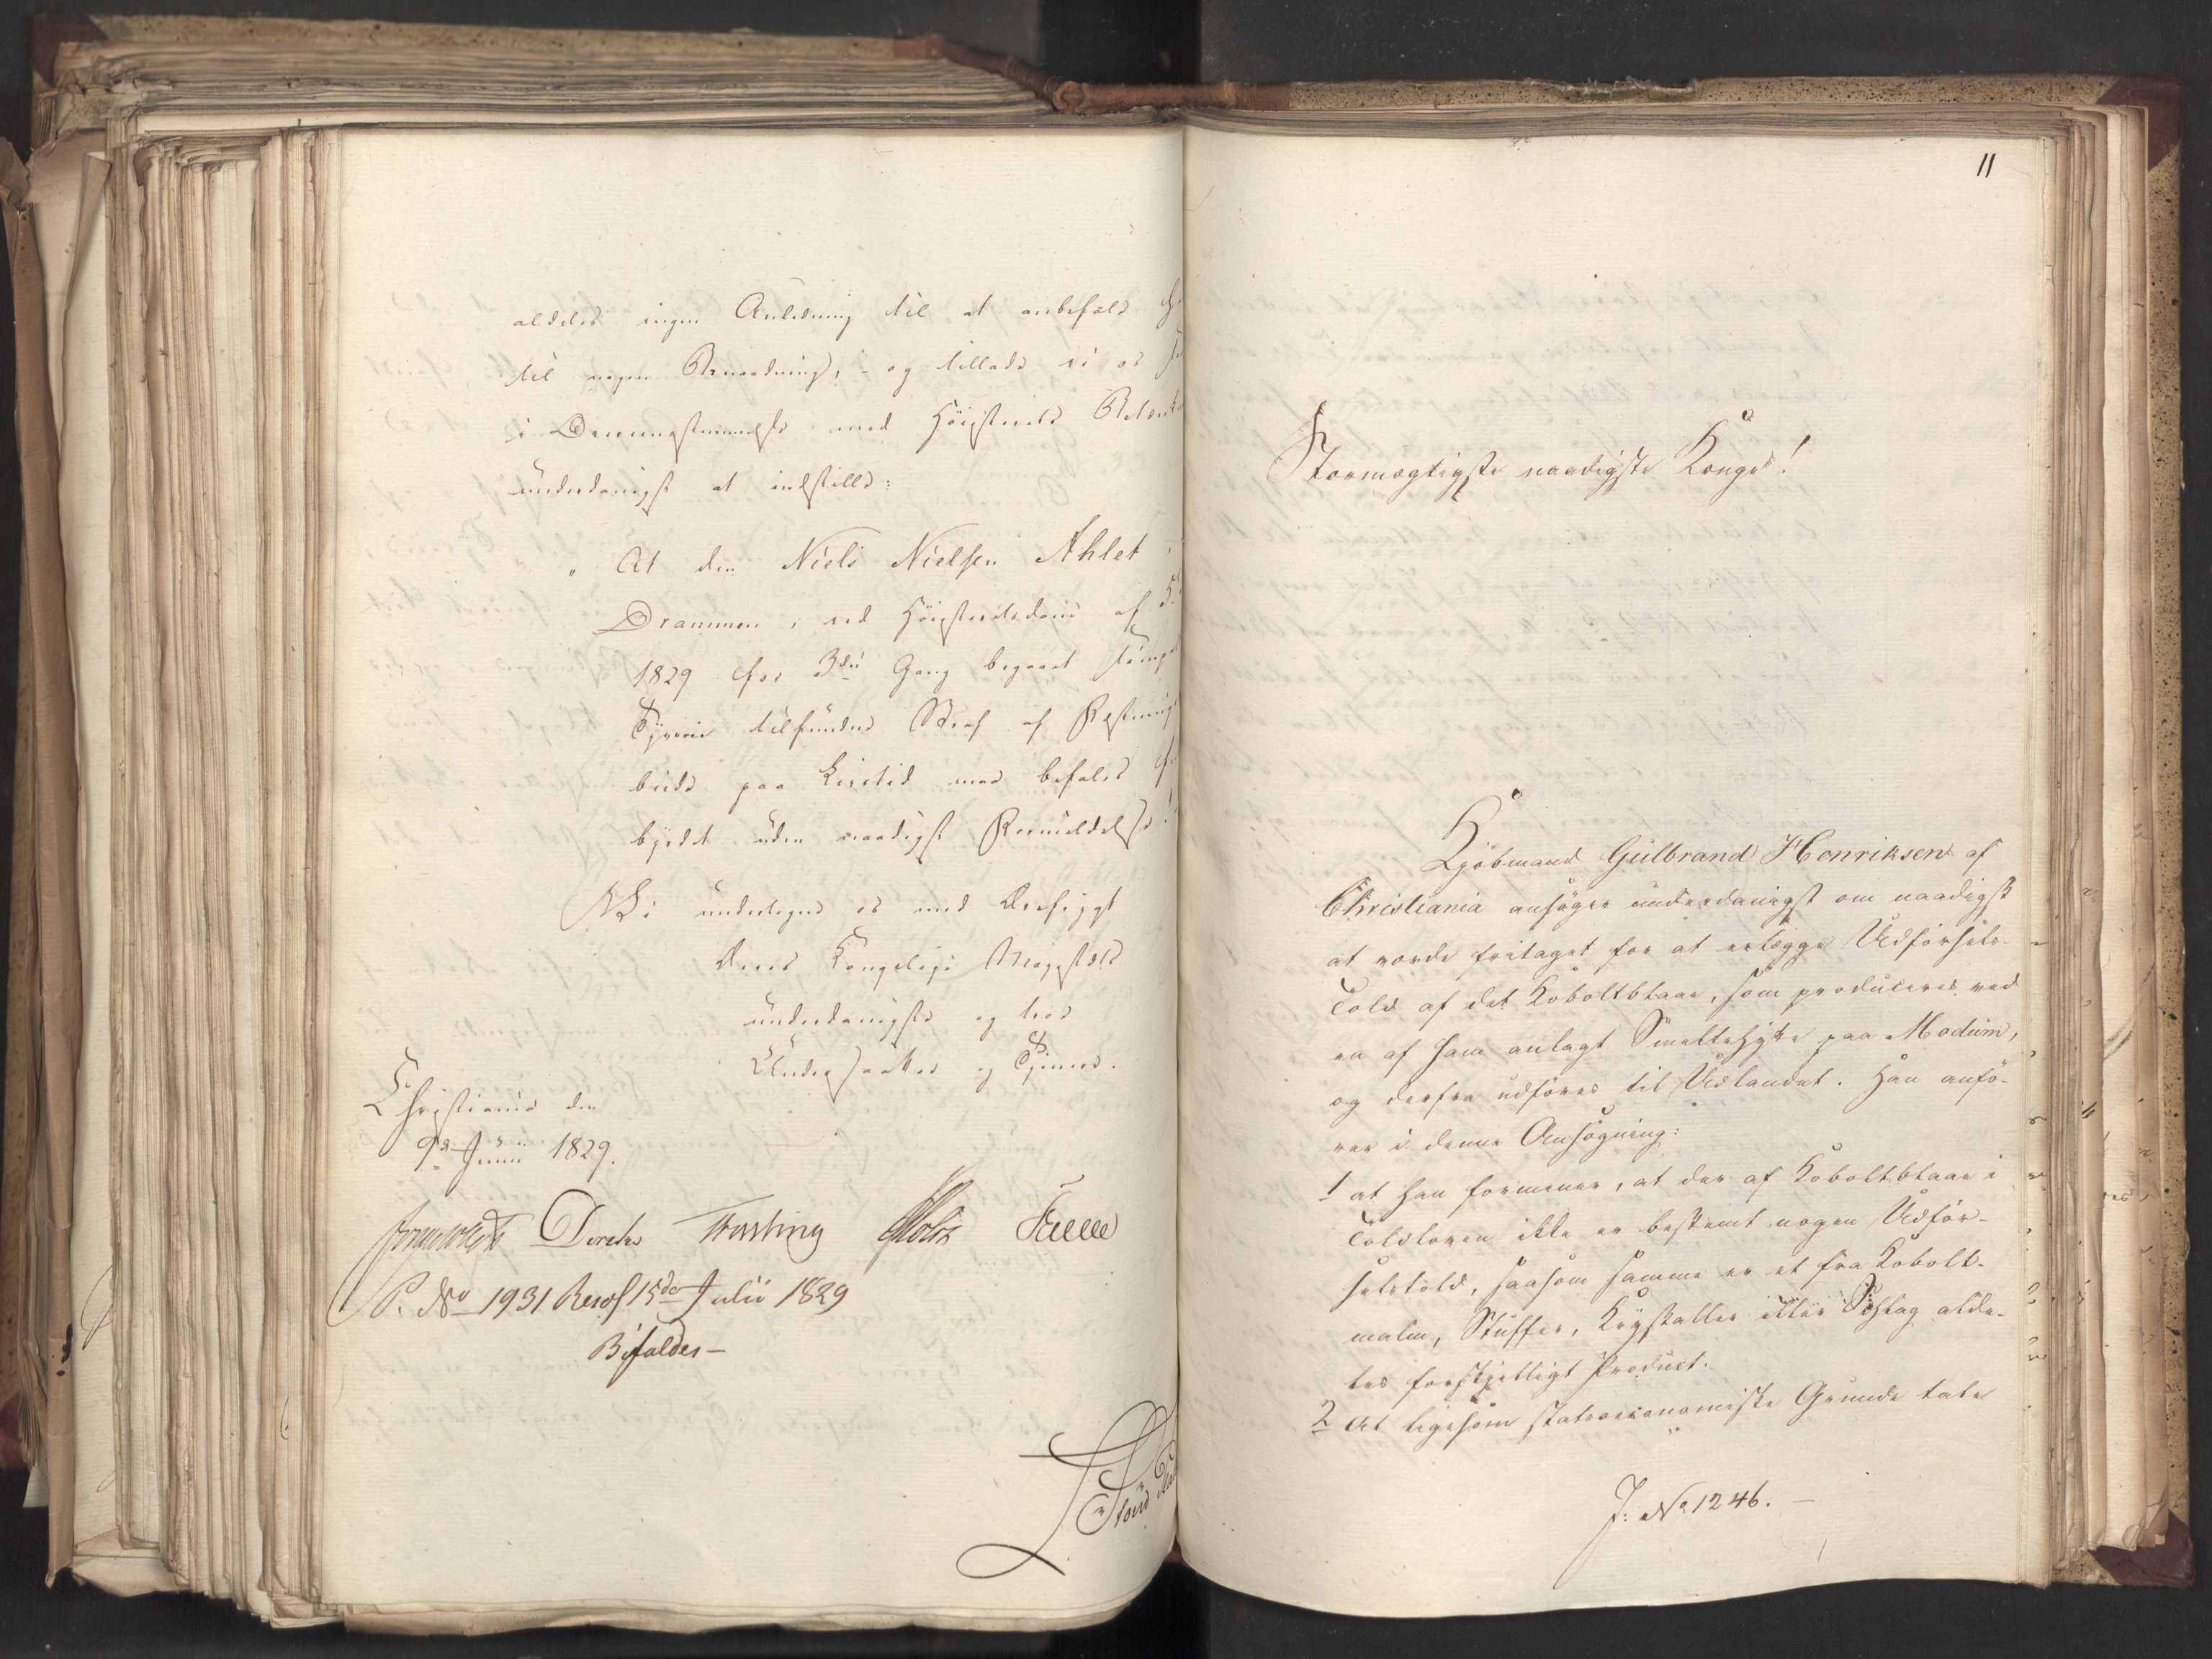 aldeles ingen Anledning til at anbefale
til nogen Benaadning, - og tillade vi os
i Overeensstemmelse med Høiesterets
underdanigst at indstille:
" At den Niels Nielsen Ahlet i
Drammen, ved Høiesteretsdom af
1829 for 3die Gang begaaet
Tyverie tilfundne Straf af
beide paa Livstid maa befales
byrdet uden naadigst Formildelse!
Vi undertegne os med Ærefrygt
Deres Kongelige Majestæts
underdanigste og troe
Undersaatter og Tjenere.
Christiania den
9de Junii 1829.
Diriks Motzfeldt Holst Fasting
P. No 1931 Resol 15de Julii 1829
Bifaldes-
11
Stormægtigste naadigste Konge!
Kjøbmand Gulbrand Henriksen af
Christiania ansøger underdanigst om naadigst
at vorde fritaget for at erlægge Udførsels-
Told af det Koboltblaae, som produceres ved
en af ham anlagt Smeltehytte paa Modum,
og derfra udføres til Udlandet. Han anfø-
rer i denne Ansøgning:
1 at han formener, at der af Koboltblaae i
Toldloven ikke er bestemt nogen Udfør-
selstold, saasom samme er et fra Kobolt-
malm, Stuffer, Krystaller eller Schlag alde-
les forskjelligt Product.
2 At ligesom statsoeconomiske Grunde tale
J: No. 1246. -